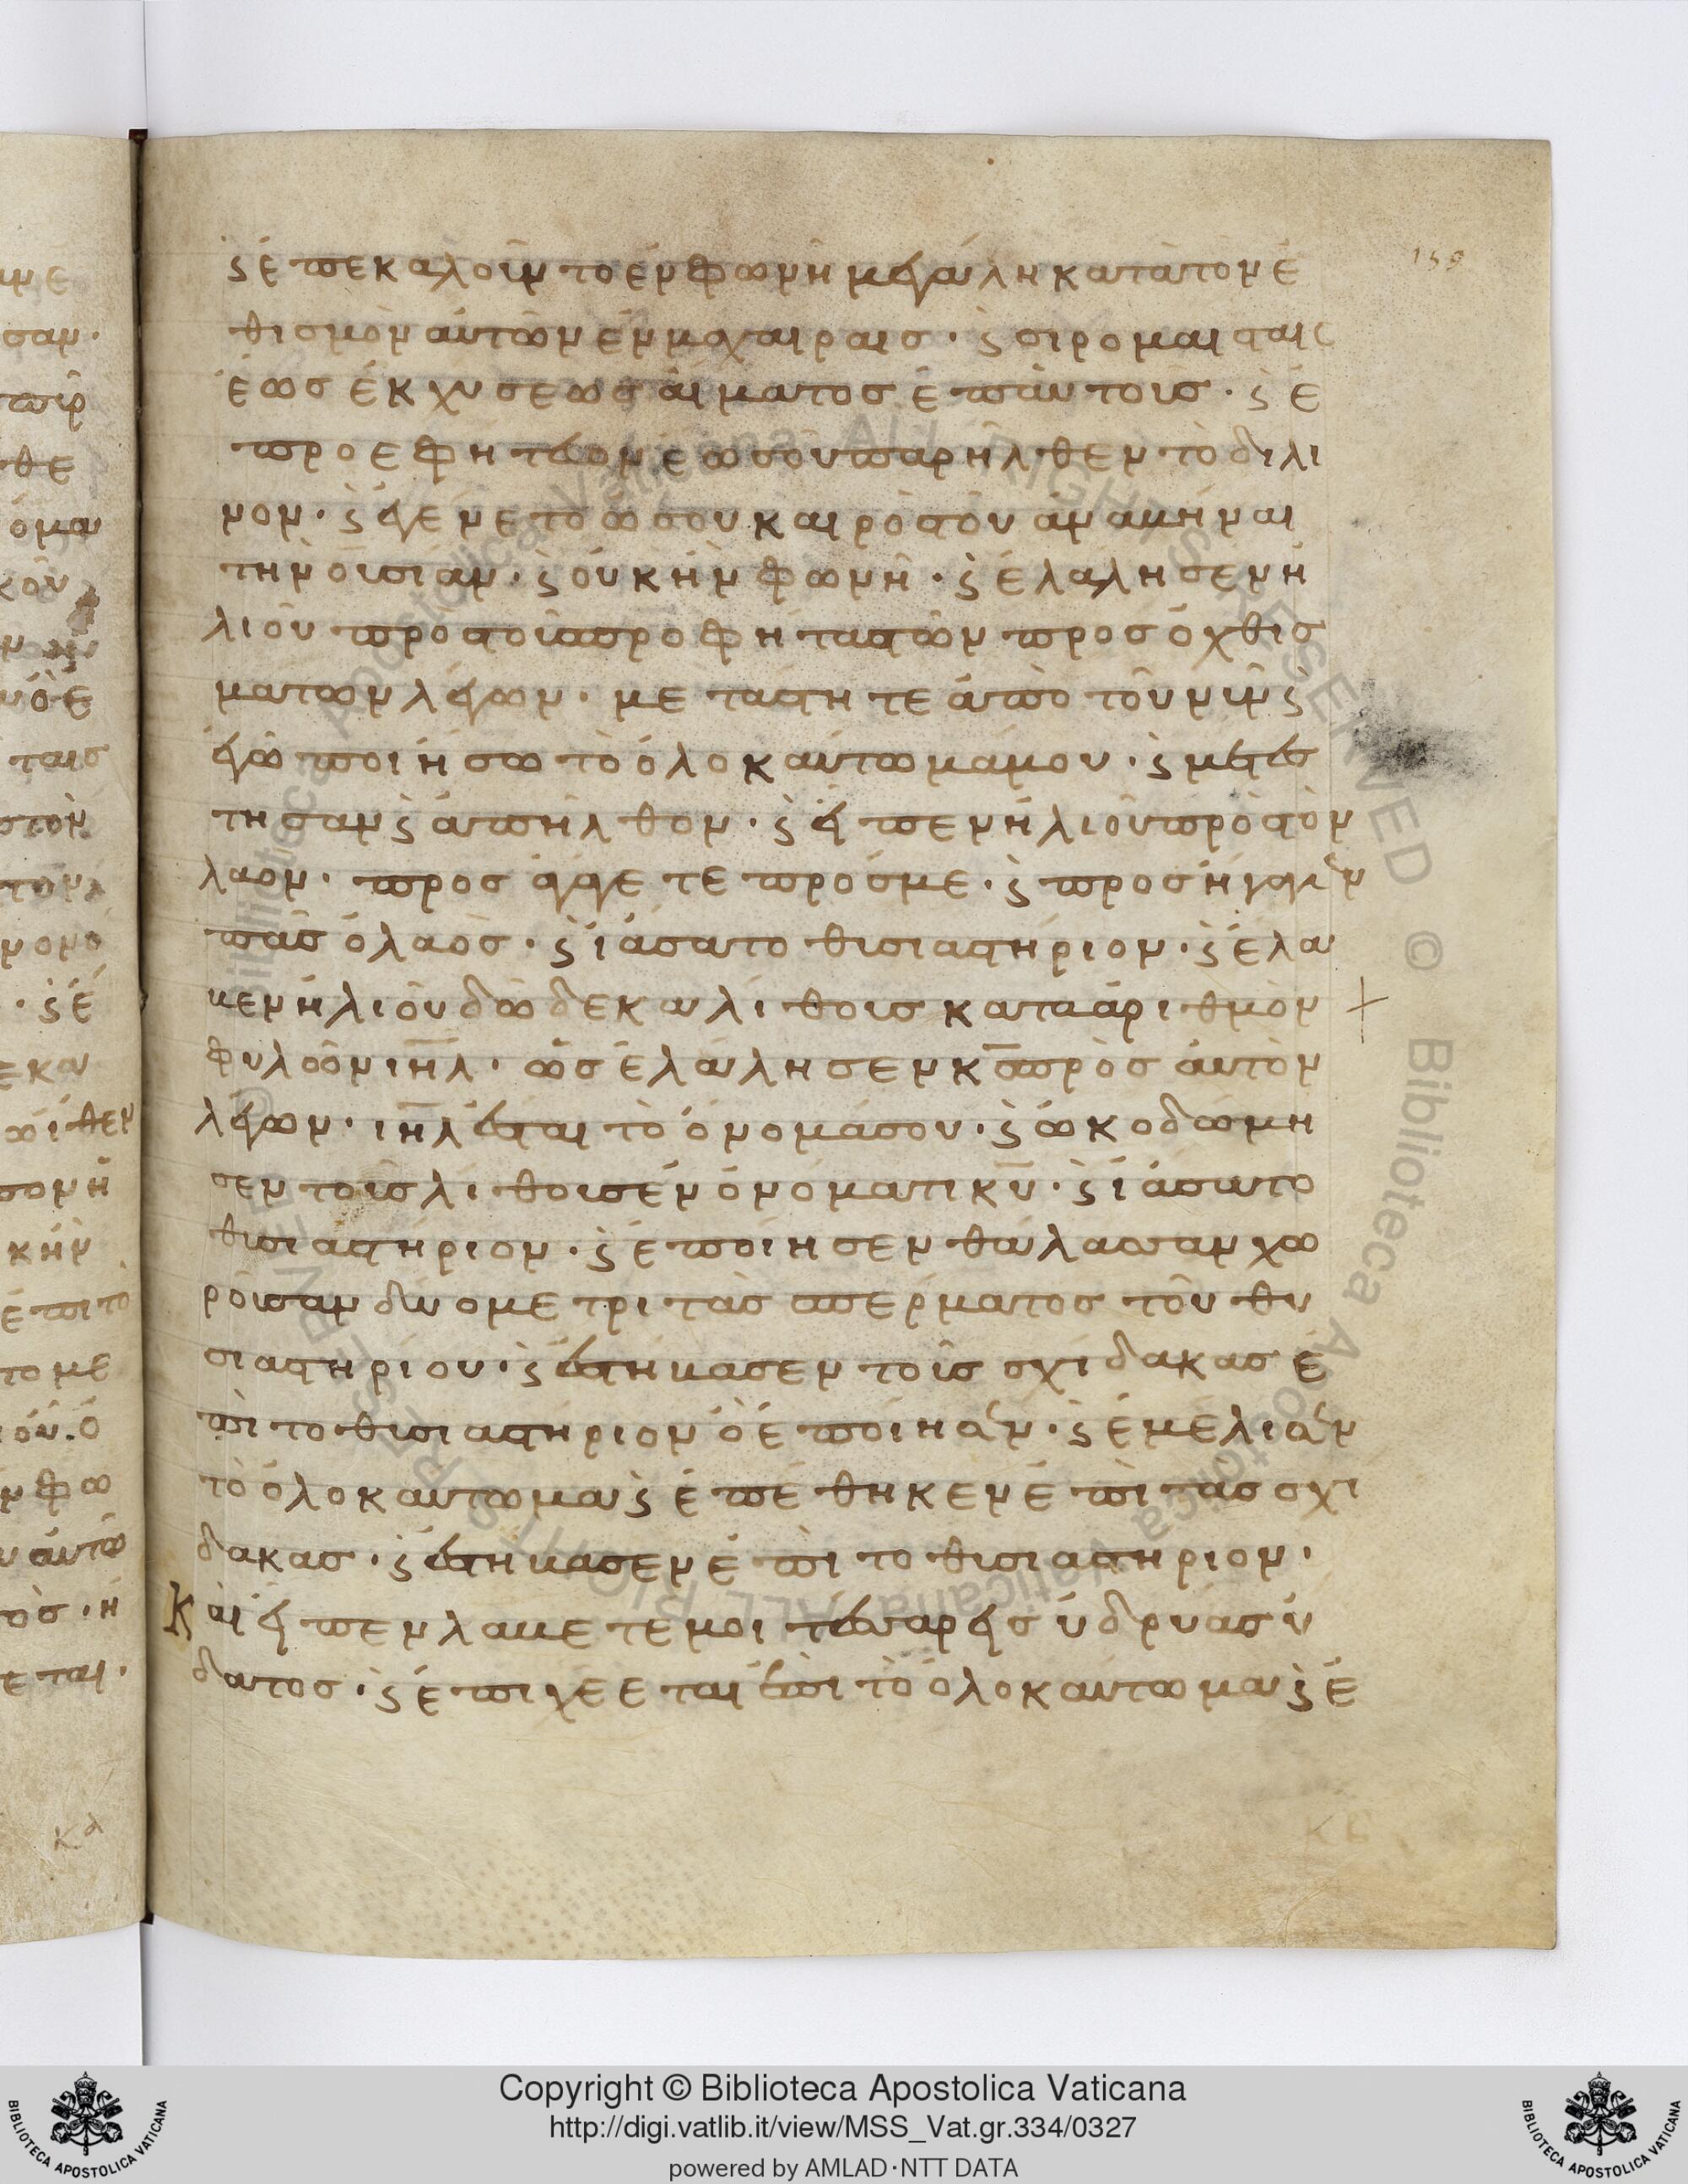 159
ϛ ἐπεκαλοῦντο ἐν φωνῆ μεγάλη κατὰ τὸν ἐ
θισμὸν αὐτῶν ἐν μαχαίραις · ϛ σιρομάσταις
ἕως ἐκχύσεως αἵματος ἐπ αὐτούς · ϛ ἐ
προεφήτευον ἕως οὗ παρῆλθεν τὸ διλι
νόν · ϛ ἐγένετο ὡς ὁ καιρὸς τοῦ ἀναβῆναι
τὴν θυσίαν · ϛ οὐκ ἦν φωνή · ϛ ἐλάλησεν ἠ
λιοῦ πρὸς τοὺς προφήτας τῶν προσοχθισ
μάτων λέγων · μετάστητε ἀπὸ τοῦ νῦν ϛ
ἐγὼ ποιήσω τὸ ὁλοκαύτωμά μου · ϛ μετέσ
τησαν ϛ ἀπῆλθον · ϛ εἶπεν ἠλιοῦ πρὸς τὸν
λαόν · προσαγάγετε πρός με · ϛ προσήγαγεν
πᾶς ὁ λαός · ϛ ἰάσατο θυσιαστήριον · ϛ ἔλα
βεν ἠλιοῦ δώδεκα λίθους κατὰ ἀριθμὸν
φυλῶν ιηλ · ὡς ἐλάλησεν κς πρὸς αὐτὸν
λέγων · ιηλ ἔσται τὸ ὄνομά σου · ϛ ὠκοδώμη
σεν τοὺς λίθους ἐν ὀνόματι κυ · ϛ ἰάσατο
θυσιαστήριον · ϛ ἐποίησεν θάλασσαν χω
ροῦσαν δύο μετρητὰς σπέρματος τοῦ θυ
σιαστηρίου · ϛ ἐστήβασεν τοὺς σχίδακας ἐ
πὶ τὸ θυσιαστήριον ὃ ἐποίησεν · ϛ ἐμέλισεν
τὸ ὁλοκαύτωμα ϛ ἐπέθηκεν ἐπὶ τὰς σχί
δακας · ϛ ἐστήβασεν ἐπὶ τὸ θυσιαστήριον ·
Καὶ εἶπεν λάβετέ μοι τέσσαρες ὑδρίας ὕ
δατος · ϛ ἐπιχέεται ἐπὶ τὸ ὁλοκαύτωμα ϛ ἐ
Copyright © Biblioteca Apostolica Vaticana
http://digi.vatlib.it/view/MSS_Vat.gr.334/0327
powered by AMLAD·NTT DATA